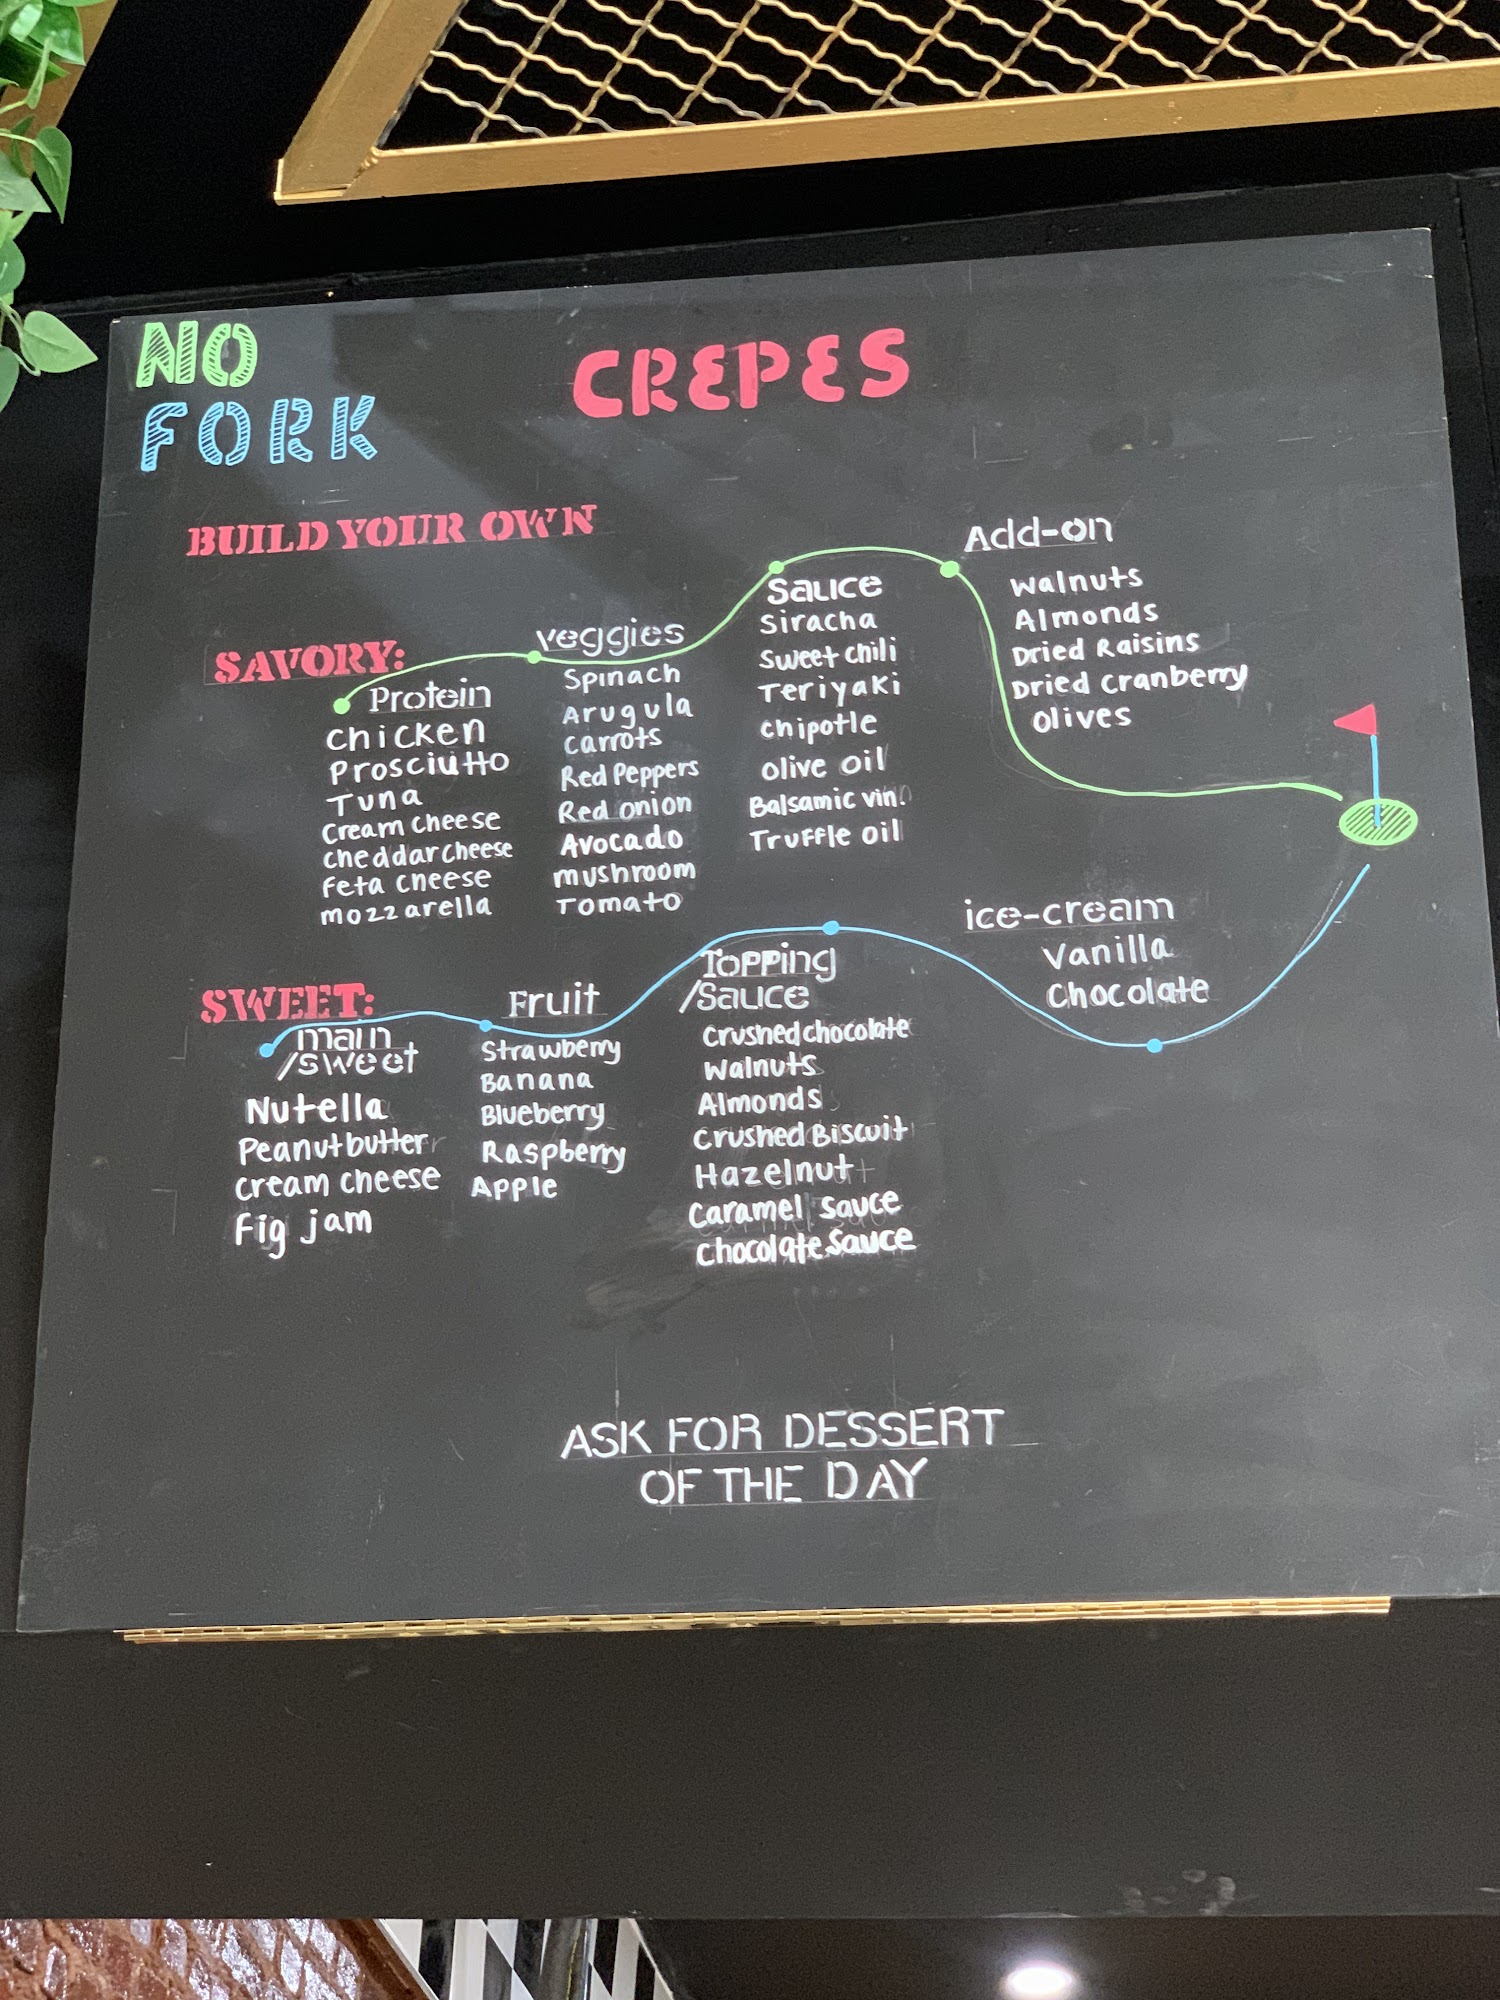 NO
FORK
CREPES
BUILD YOUR OWN
SAVORY:
Protein
Chicken
Prosciutto
Tuna
Cream cheese
cheddar cheese
Feta cheese
mozzarella
veggies
Spinach
Arugula
Carrots
Red Peppers
Red onion
Avocado
mushroom
Tomato
Sauce
Siracha
Sweet chili
Teriyaki
Chipotle
olive oil
Balsamic vin.
Truffle oil
Add-on
Walnuts
Almonds
Dried Raisins
Dried Cranberry
Olives
SWEET:
main
/sweet
Nutella
Peanut butter
Cream cheese
Fig jam
Fruit
Strawberry
Banana
Blueberry
Raspberry
Apple
Topping
/Sauce
Crushed chocolate
Walnuts
Almonds
Crushed Biscuit
Hazelnut
Caramel Sauce
Chocolate Sauce
ice-cream
Vanilla
Chocolate
ASK FOR DESSERT
OF THE DAY